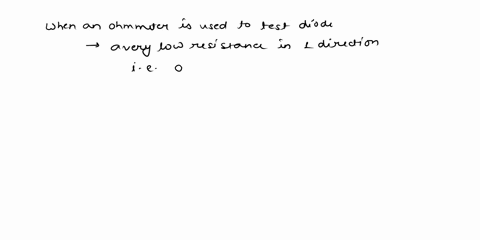 When an ohmmeter is used to test diode
→ a very low resistance in 1 direction
i.e. 0